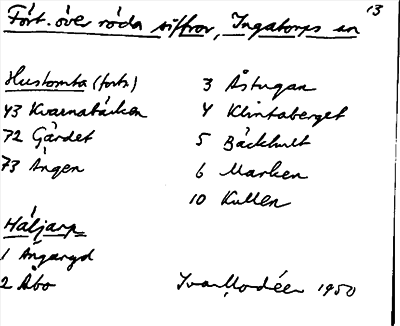 13
Fört. över röda siffror, Ingatorps sn
Hustomta (forts)
43 Kvarnabäcken
72 Gärdet
73 Ängen
Håljarp
1 Ängaryd
2 Åbo
3 Åstugan
4 Klintaberget
5 Bäckhult
6 Marken
10 Kullen
Ivar Modéer 1950